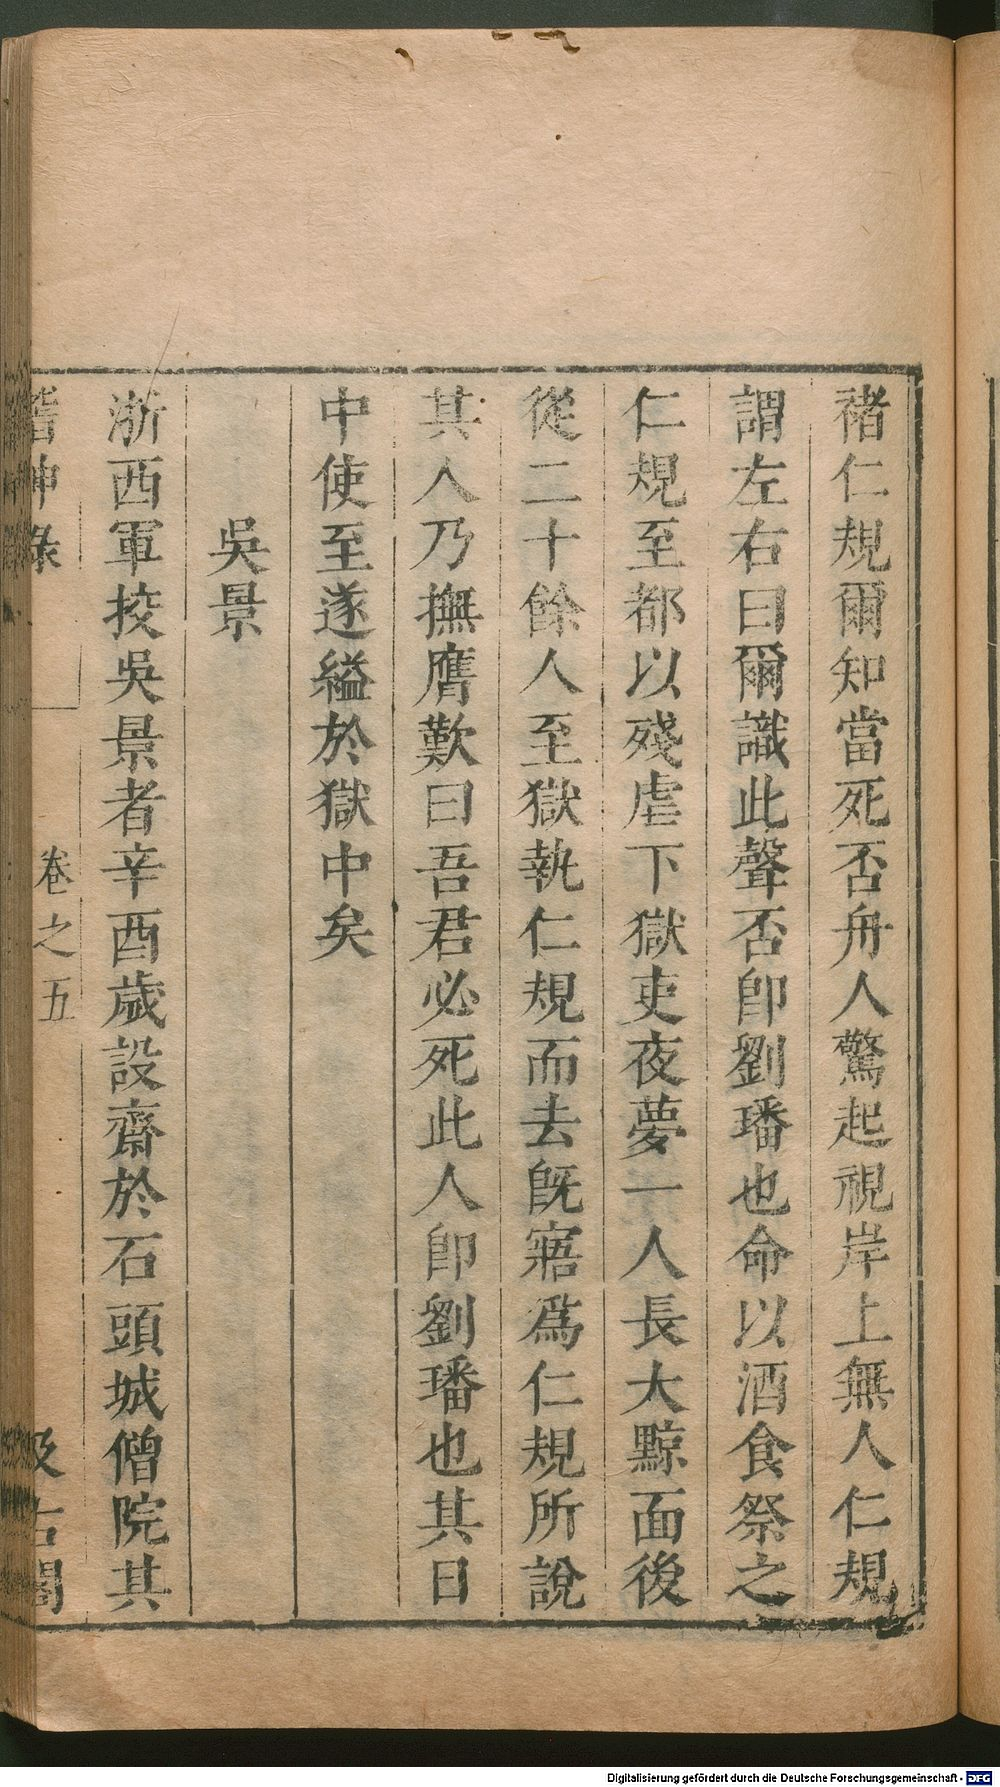 褚仁規爾知當死否舟人驚起視岸上無人仁規
謂左右曰爾識此聲否卽劉璠也命以酒食祭之
仁規至都以殘虐下獄吏夜夢一人長大黥面後
從二十餘人至獄執仁規而去旣寤爲仁規所說
其人乃撫膺歎曰吾君必死此人卽劉璠也其日
中使至遂縊於獄中矣
吳景
浙西軍挍吳景者辛酉歲設齋於石頭城僧院其
稽神錄 卷之五 汲古閣
Digitalisierung gefördert durch die Deutsche Forschungsgemeinschaft - DFG